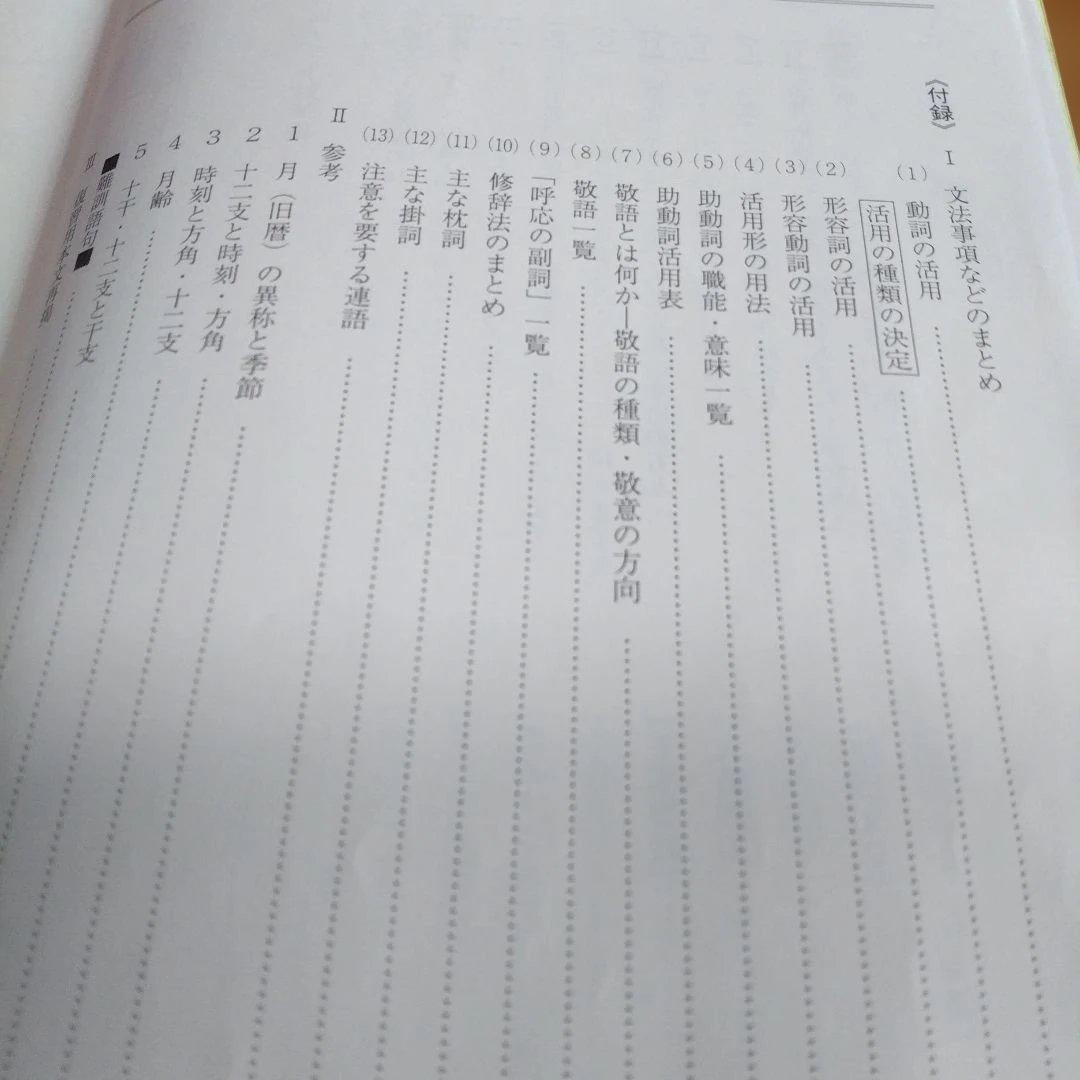 《付録》
Ⅰ 文法事項などのまとめ
(1) 動詞の活用
活用の種類の決定
(2) 形容詞の活用
(3) 形容動詞の活用
(4) 活用形の用法
(5) 助動詞の職能・意味一覧
(6) 助動詞活用表
(7) 敬語とは何か―敬語の種類・敬意の方向
(8) 敬語一覧
(9) 「呼応の副詞」一覧
(10) 修辞法のまとめ
(11) 主な枕詞
(12) 主な掛詞
(13) 注意を要する連語
Ⅱ 参考
1 月(旧暦)の異称と季節
2 十二支と時刻・方角
3 時刻と方角・十二支
4 月齢
5 十干・十二支と干支
■難訓語句■
Ⅲ 復習用本文再掲